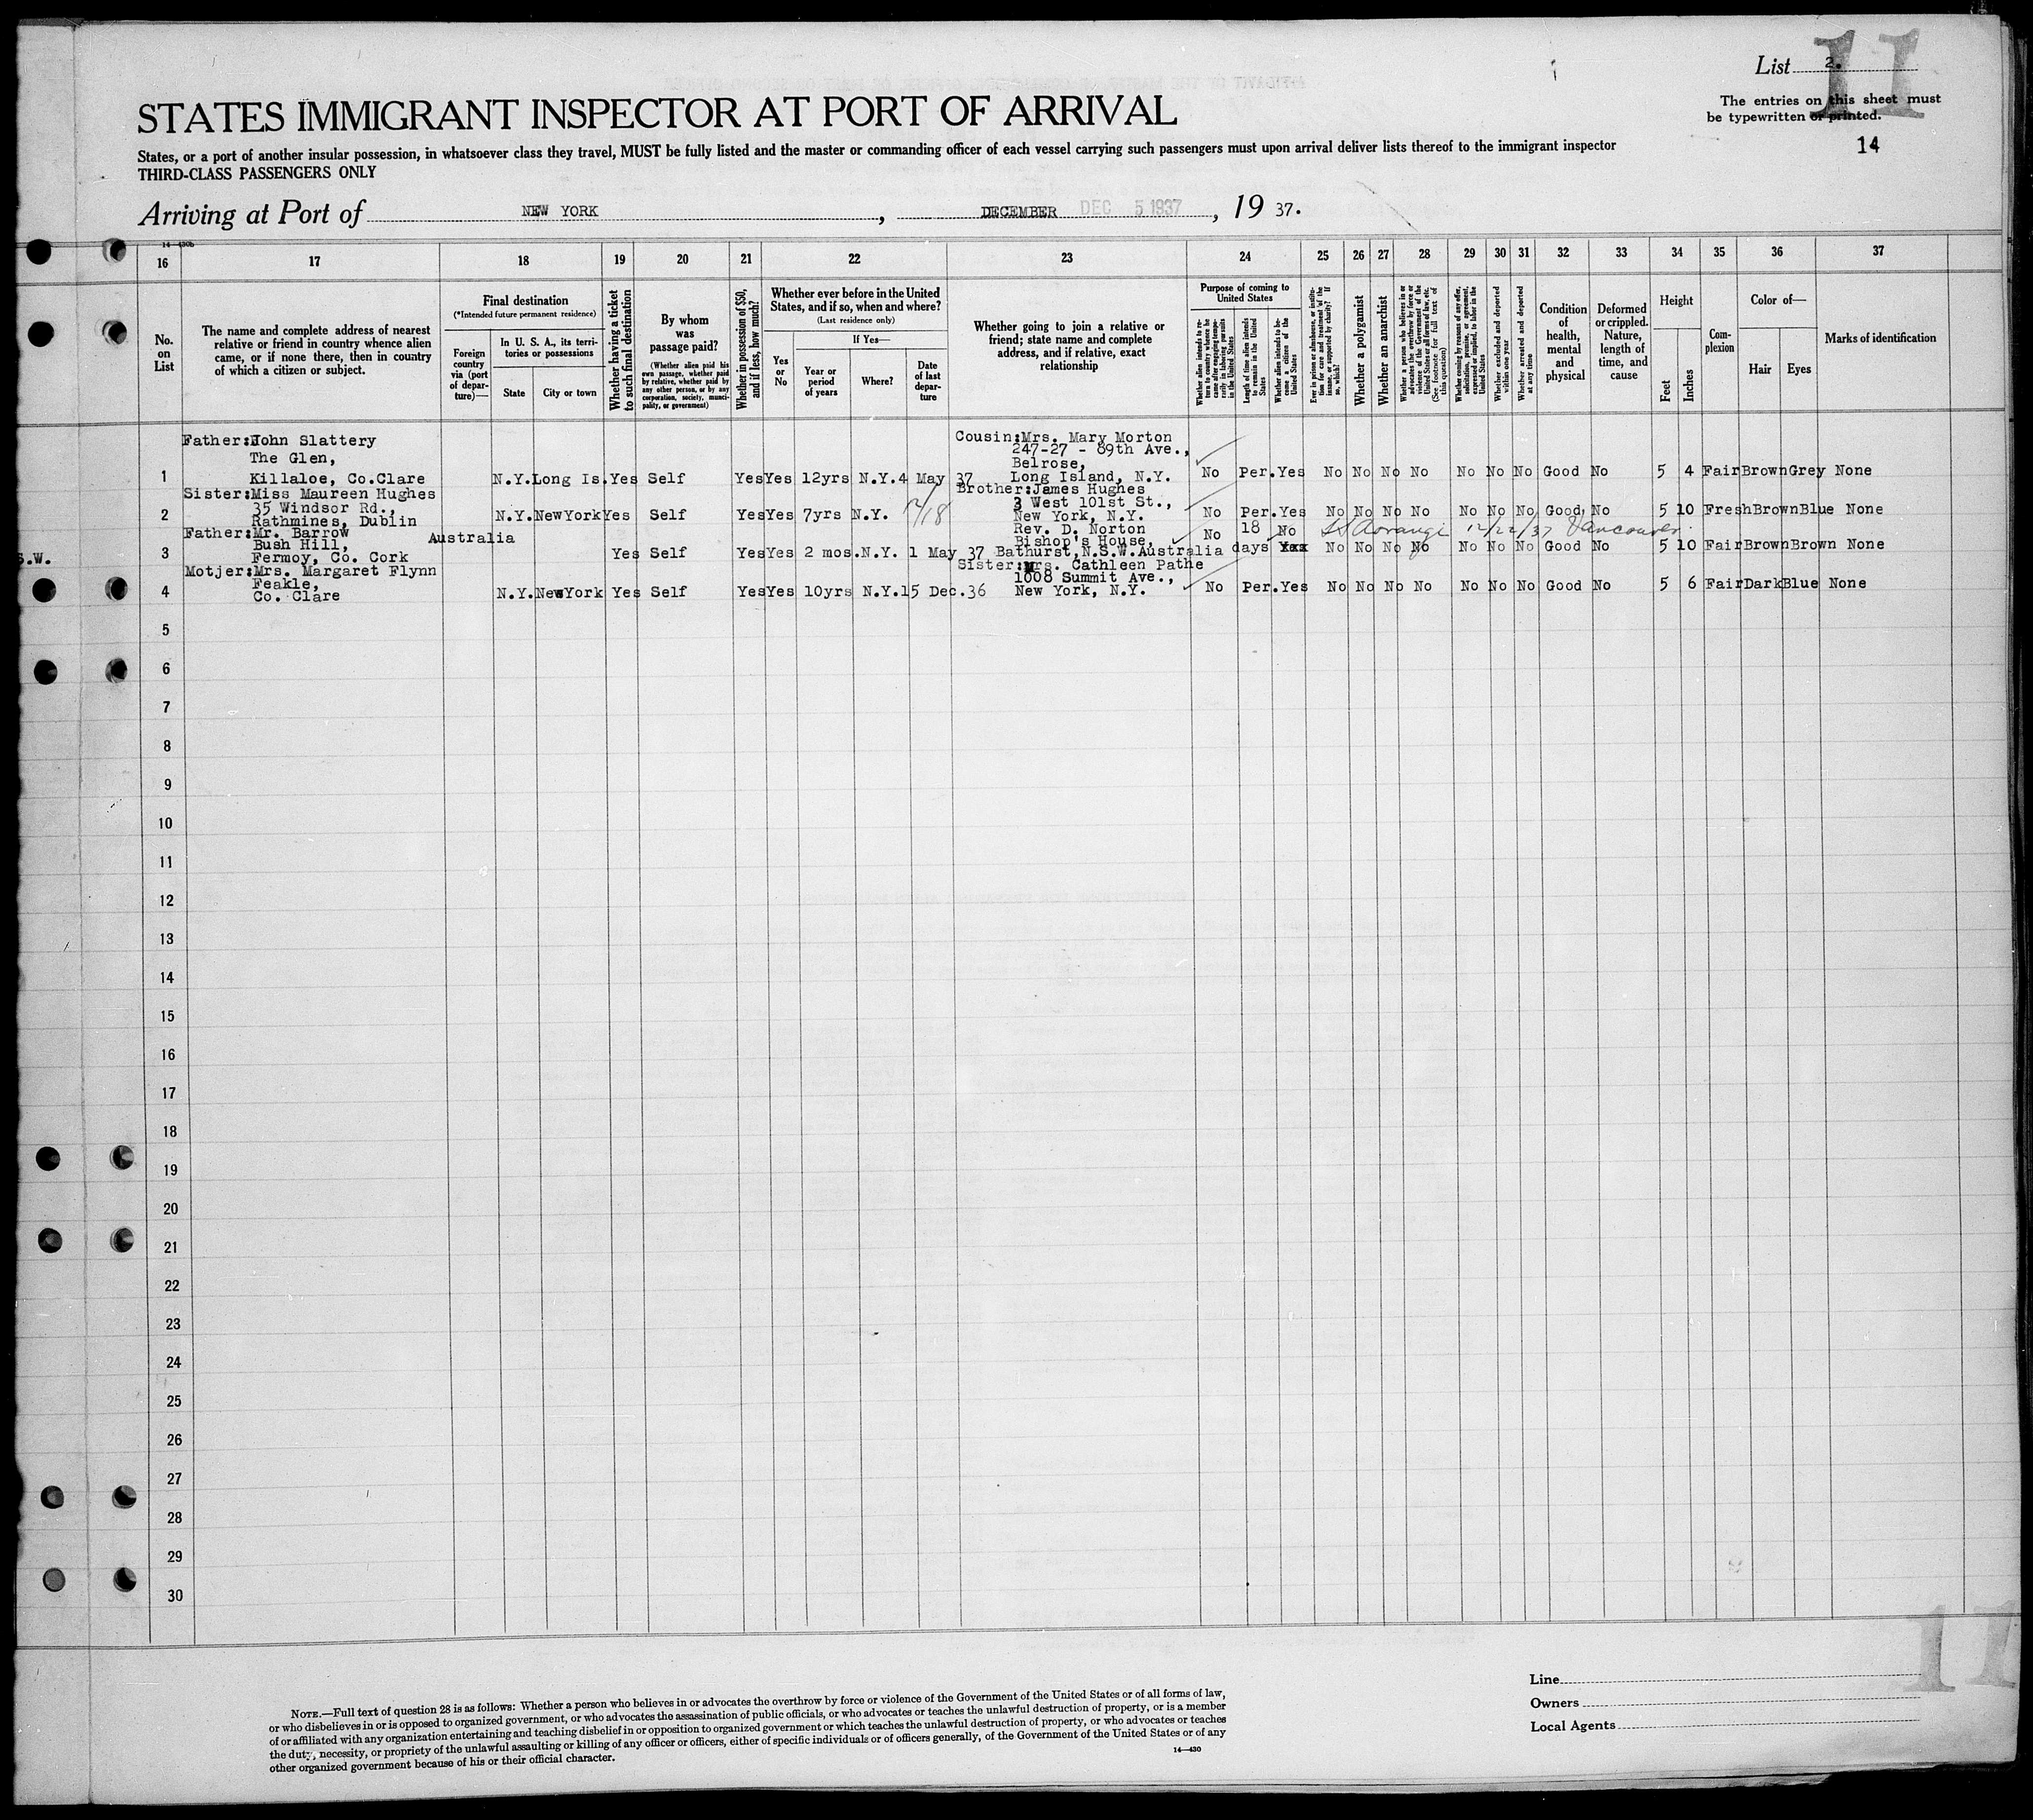 11
List 2.
The entries on this sheet must
be typewritten or printed.
14
STATES IMMIGRANT INSPECTOR AT PORT OF ARRIVAL
States, or a port of another insular possession, in whatsoever class they travel, MUST be fully listed and the master or commanding officer of each vessel carrying such passengers must upon arrival deliver lists thereof to the immigrant inspector
THIRD-CLASS PASSENGERS ONLY
Arriving at Port of NEW YORK, DECEMBER DEC 5 1937, 19 37.
14—430b
16 17 18 19 20 21 22 23 24 25 26 27 28 29 30 31 32 33 34 35 36 37
No. on List
The name and complete address of nearest
relative or friend in country whence alien
came, or if none there, then in country
of which a citizen or subject.
Final destination
(*Intended future permanent residence)
Foreign country via (port of departure)—
In U. S. A., its territories or possessions
State
City or town
Whether having a ticket to such final destination
By whom was passage paid?
(Whether alien paid his own passage, whether paid by relative, whether paid by any other person, or by any corporation, society, municipality, or government)
Whether in possession of $50, and if less, how much?
Whether ever before in the United
States, and if so, when and where?
(Last residence only)
Yes or No
If Yes—
Year or period of years
Where?
Date of last departure
Whether going to join a relative or
friend; state name and complete
address, and if relative, exact
relationship
Purpose of coming to United States
Whether alien intends to return to country whence he came after engaging temporarily in laboring pursuits in the United States
Length of time alien intends to remain in the United States
Whether alien intends to become a citizen of the United States
Ever in prison or almshouse, or institution for care and treatment of the insane, or supported by charity? If so, which?
Whether a polygamist
Whether an anarchist
Whether a person who believes in or advocates the overthrow by force or violence of the Government of the United States or all forms of law, etc. (See footnote for full text of this question)
Whether coming by reasons of any offer, solicitation, promise, or agreement, expressed or implied, to labor in the United States
Whether excluded and deported within one year
Whether arrested and deported at any time
Condition of health, mental and physical
Deformed or crippled. Nature, length of time, and cause
Height
Feet
Inches
Complexion
Color of—
Hair
Eyes
Marks of identification
Father:John Slattery
The Glen,
Killaloe, Co.Clare
1 N.Y. Long Is. Yes Self Yes Yes 12yrs N.Y. 4 May 37
Cousin:Mrs. Mary Morton
247-27 - 89th Ave.,
Belrose,
Long Island, N.Y.
No Per. Yes No No No No No No No Good No 5 4 Fair Brown Grey None
Sister:Miss Maureen Hughes
35 Windsor Rd.,
Rathmines, Dublin
2 N.Y. NewYork Yes Self Yes Yes 7yrs N.Y.
Brother:James Hughes
3 West 101st St.,
New York, N.Y.
No Per. Yes No No No No No No No Good No 5 10 Fresh Brown Blue None
Father:Mr. Barrow
Bush Hill,
Fermoy, Co. Cork
S.W.
3 Australia Yes Self Yes Yes 2 mos. N.Y. 1 May 37
Rev. D. Norton
Bishop's House,
Bathurst,N.S.W.Australia
No 18 days No No No No No No No No Good No 5 10 Fair Brown Brown None
Aorangi 12/22/37 Vancouver
Motjer:Mrs. Margaret Flynn
Feakle,
Co. Clare
4 N.Y. NewYork Yes Self Yes Yes 10yrs N.Y. 15 Dec.36
Sister:Mrs. Cathleen Pathe
1008 Summit Ave.,
New York, N.Y.
No Per. Yes No No No No No No No Good No 5 6 Fair Dark Blue None
5
6
7
8
9
10
11
12
13
14
15
16
17
18
19
20
21
22
23
24
25
26
27
28
29
30
11
NOTE.—Full text of question 28 is as follows: Whether a person who believes in or advocates the overthrow by force or violence of the Government of the United States or of all forms of law,
or who disbelieves in or is opposed to organized government, or who advocates the assassination of public officials, or who advocates or teaches the unlawful destruction of property, or is a member
of or affiliated with any organization entertaining and teaching disbelief in or opposition to organized government or which teaches the unlawful destruction of property, or who advocates or teaches
the duty, necessity, or propriety of the unlawful assaulting or killing of any officer or officers, either of specific individuals or of officers generally, of the Government of the United States or of any
other organized government because of his or their official character.
14—430
Line
Owners
Local Agents